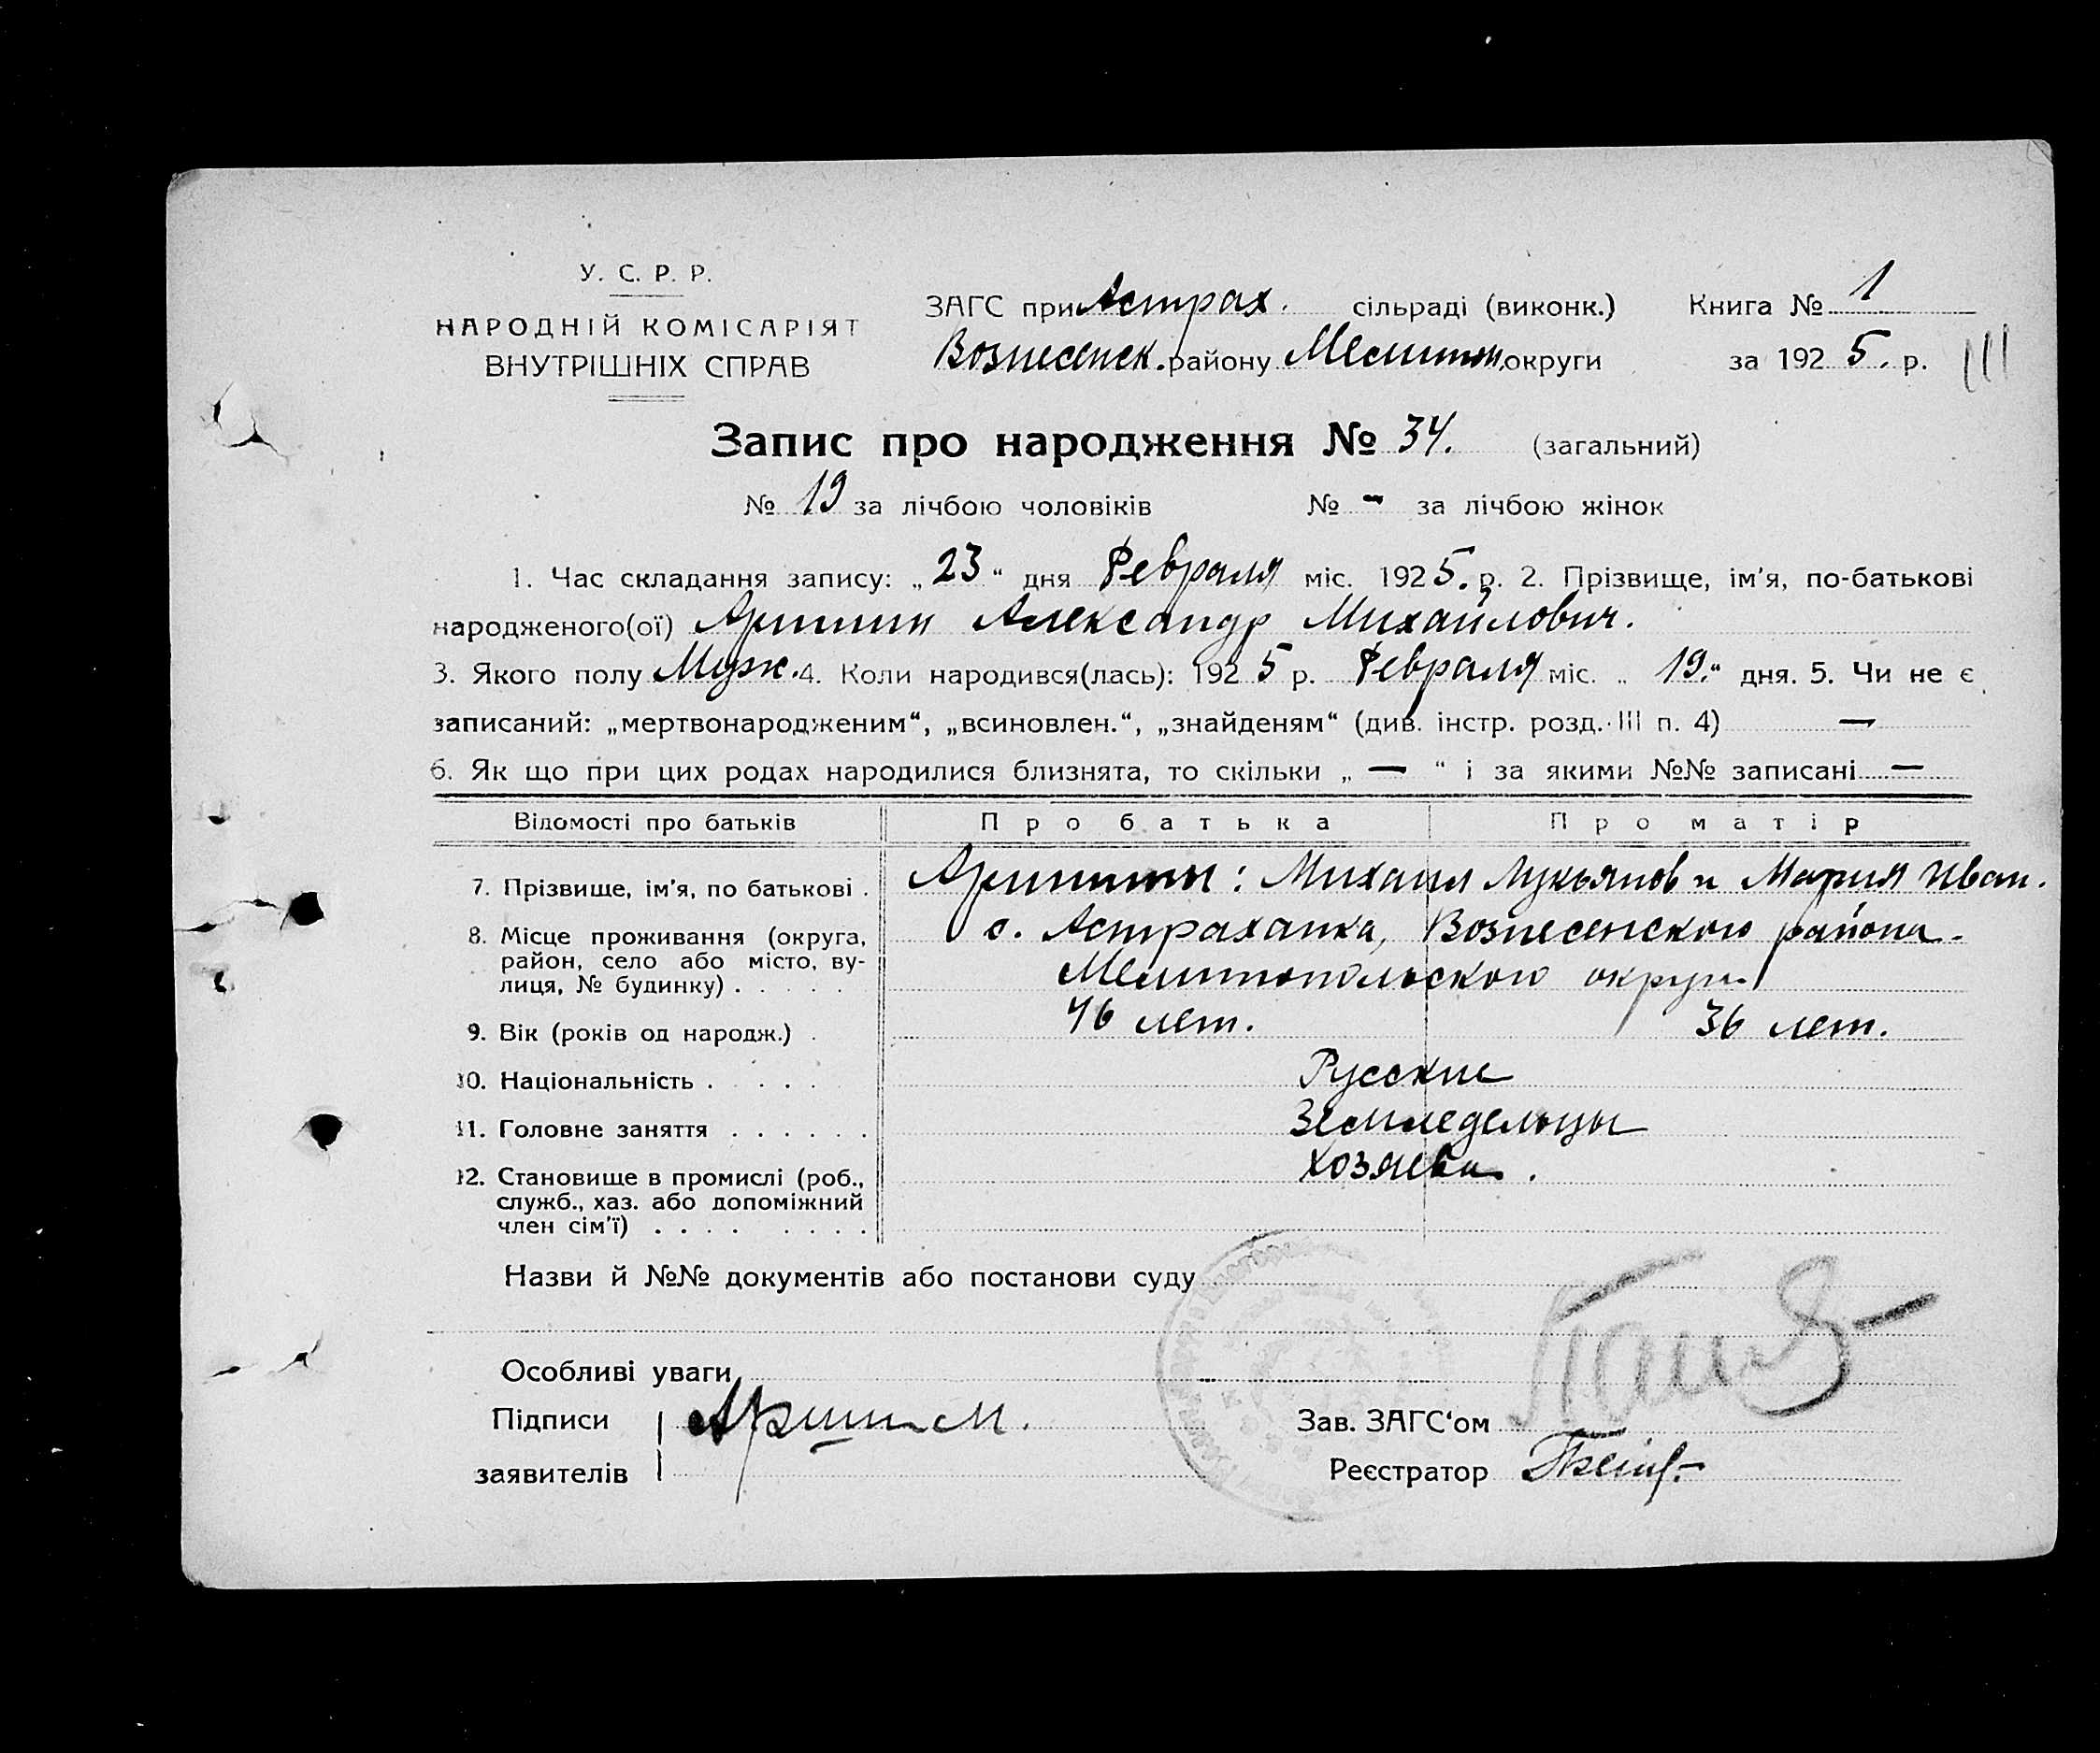 У. С. Р. Р.
НАРОДНІЙ КОМІСАРІЯТ
ВНУТРІШНІХ СПРАВ
ЗАГС при Астрах. сільраді (виконк.) Книга № 1
Вознесенск. району Мелитоп. округи за 1925. р. III
Запис про народження № 34. (загальний)
№ 19 за лічбою чоловіків № - за лічбою жінок
1. Час складання запису: „23“ дня Февраля міс. 1925. р. 2. Прізвище, ім'я, по-батькові
народженого(ої) Аришин Александр Михайлович.
3. Якого полу Муж. 4. Коли народився(лась): 1925 р. Февраля міс. „19.“ дня. 5. Чи не є
записаний: „мертвонародженим“, „всиновлен.“, „знайденям“ (див. інстр. розд. III п. 4) —
6. Як що при цих родах народилися близнята, то скільки „ — “ і за якими №№ записані —
Відомості про батьків Про батька Про матір
7. Прізвище, ім'я, по батькові . : Михаил Лукьянов и Мария Иван.
8. Місце проживання (округа, район, село або місто, ву-
лиця, № будинку) . . . . . с. Астраханка, Вознесенского района
Мелитопольского округа
9. Вік (років од народж.) . 46 лет. 36 лет.
10. Національність . . . . Русские
11. Головне заняття . . . . . . Земледельцы
12. Становище в промислі (роб., Хозяева.
служб., хаз. або допоміжний
член сім'ї) . . . . . . . .
Назви й №№ документів або постанови суду
Особливі уваги
Підписи Аришин М. Зав. ЗАГС'ом
заявителів Реєстратор